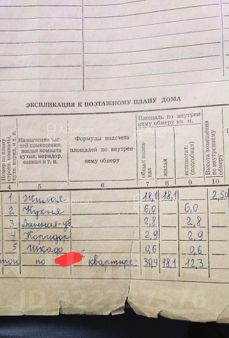 ЭКСПЛИКАЦИЯ К ПОЭТАЖНОМУ ПЛАНУ ДОМА
Номер по плану
Назначение частей помещения: жилая комната кухня, коридор, ванная и т.д.
Формулы подсчета площадей по внутреннему обмеру
Площадь по внутреннему обмеру кв. м.
общая полезная
жилая
подсобная
Высота помещения по внутреннему обмеру
4 5 6 7 8 9 10
1 Жилая 18,1 18,1 2,50
2 Кухня 6,0 6,0
3 Ванная-уб 2,8 2,8
4 Коридор 2,9 2,9
5 Шкаф 0,6 0,6
Итого по квартире: 30,4 18,1 12,3